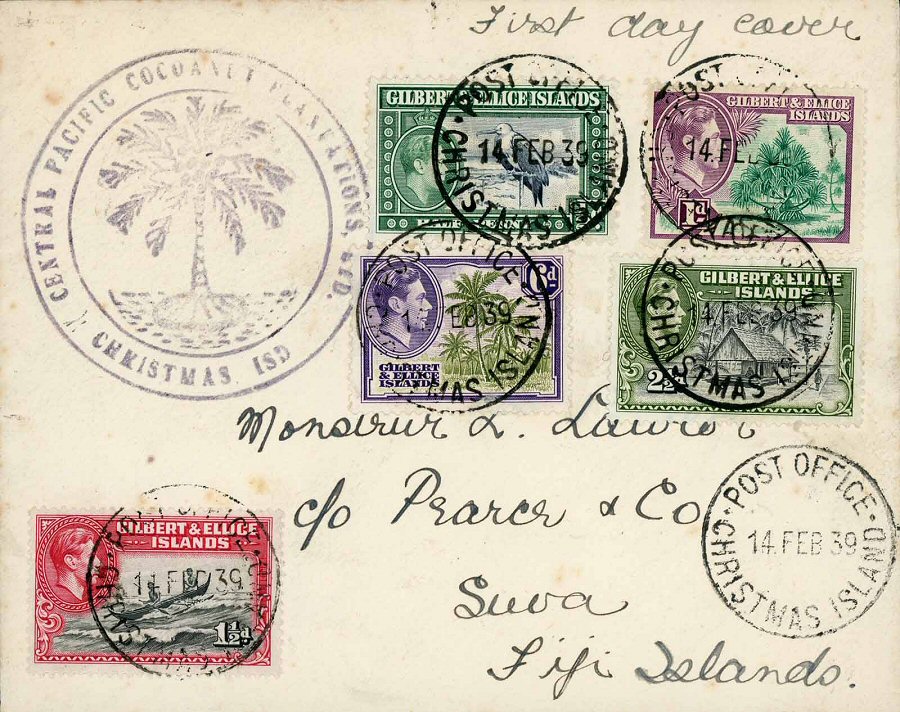 First day cover
CENTRAL PACIFIC COCOANUT PLANTATIONS, LTD.
CHRISTMAS. ISD
GILBERT & ELLICE ISLANDS
POST OFFICE
CHRISTMAS ISLAND
14.FEB 39
GILBERT & ELLICE
ISLANDS
POST
14.FEB
1d
POST OFFICE
MAS ISLAND
FEB 39
6d
GILBERT
& ELLICE
ISLANDS
GILBERT & ELLICE
ISLANDS
POST OFFICE
CHRISTMAS ISLAND
14 FEB 39
2½
Monsieur L.
c/o Pearce & Co
Suva
Fiji Islands.
POST OFFICE
CHRISTMAS ISLAND
14 FEB 39
GILBERT & ELLICE
ISLANDS
POST OFFICE
14 FEB 39
1½d